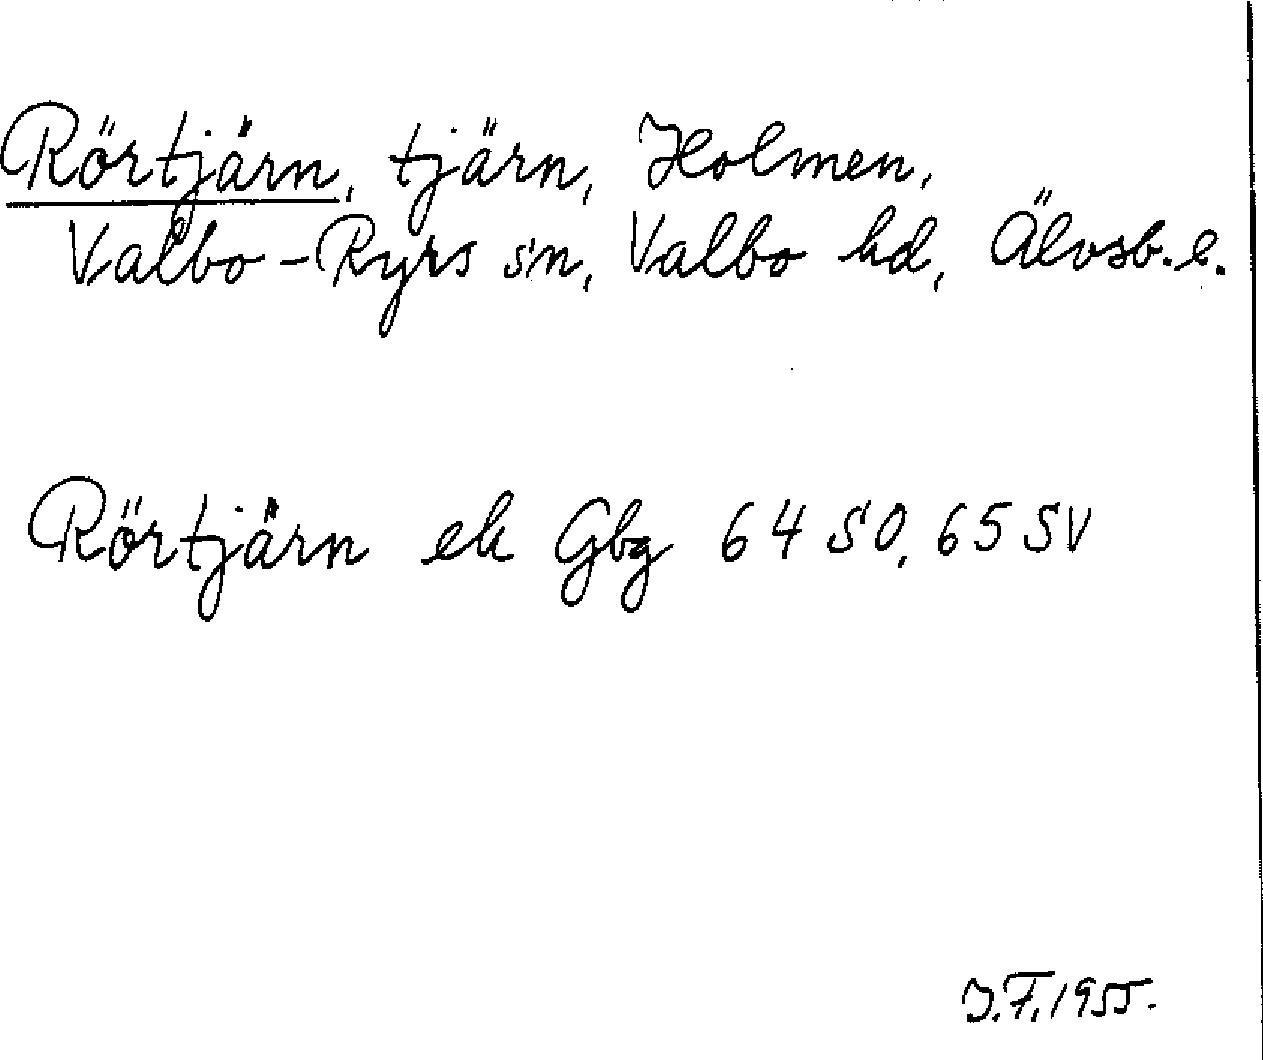 Rörtjärn, tjärn, Holmen,
Valbo-Ryrs sn, Valbo hd, Älvsb. l.
Rörtjärn ek Gbg 64 SO, 65 SV
J.F. 1955.